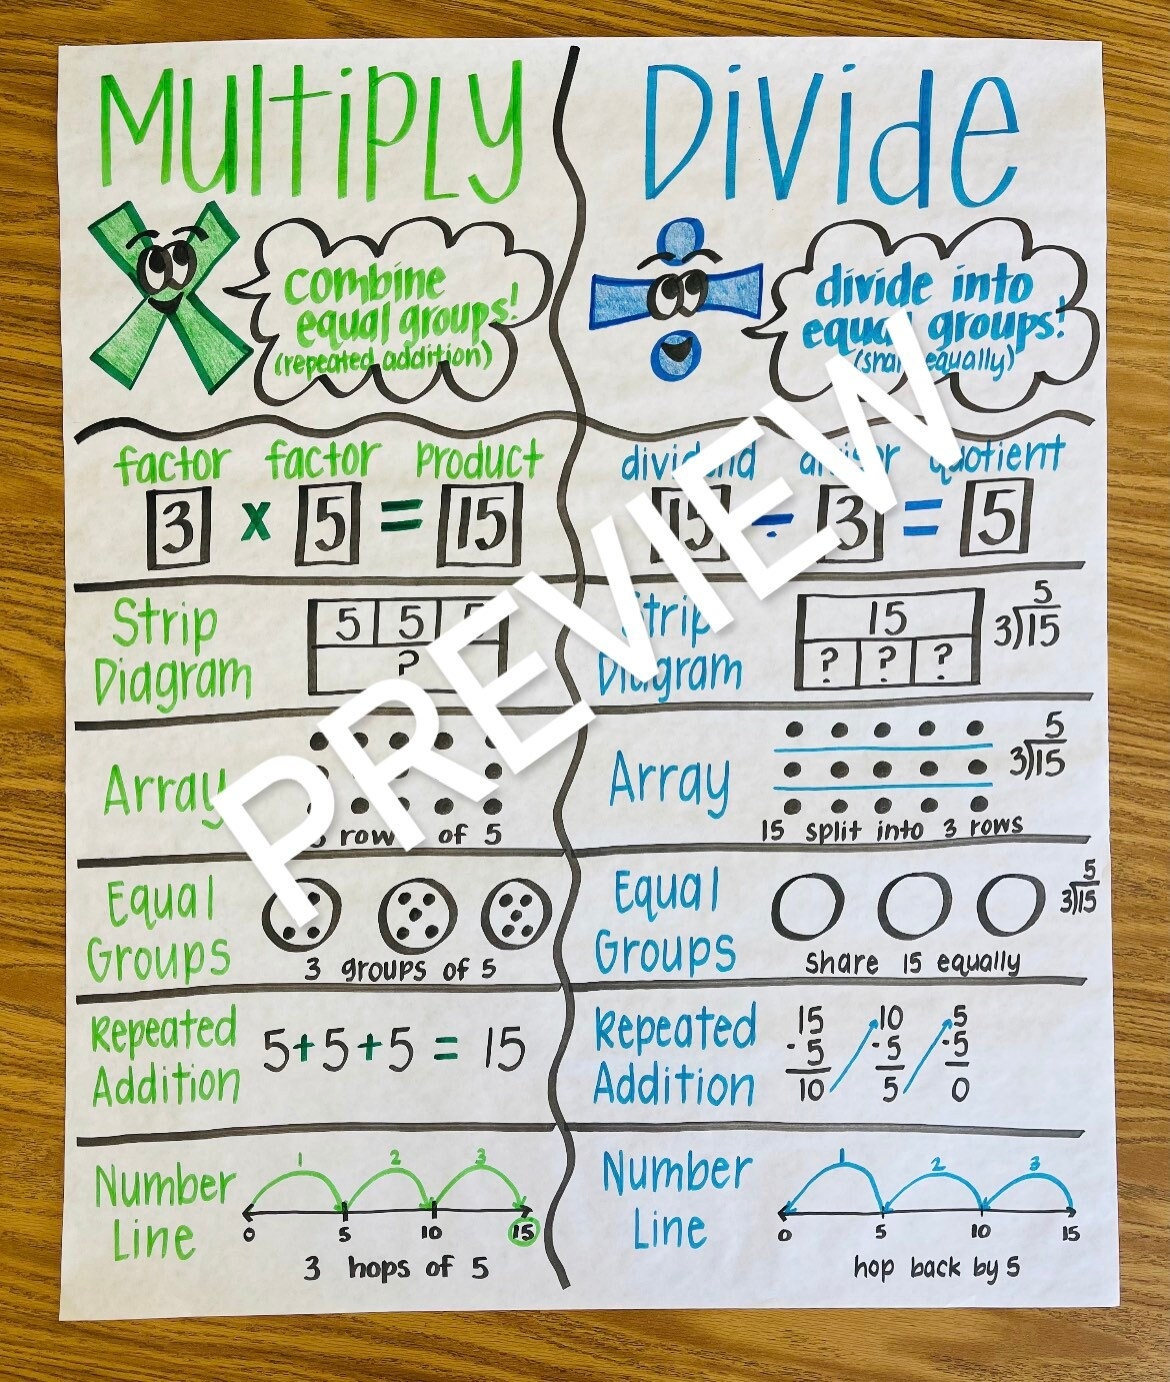 Multiply
combine
equal groups!
(repeated addition)
factor factor product
3 x 5 = 15
Strip
Diagram
5 5
?
Array
rows of 5
Equal
Groups
3 groups of 5
Repeated
Addition
5+5+5 = 15
Number
Line
1 2 3
0 5 10 15
3 hops of 5
Divide
divide into
equal groups!
(share equally)
dividend divisor quotient
15 ÷ 3 = 5
Strip
Diagram
15
? ? ?
5
3)15
Array
5
3)15
15 split into 3 rows
Equal
Groups
5
3)15
Share 15 equally
Repeated
Addition
15 10 5
-5 -5 -5
10 5 0
Number
Line
1 2 3
0 5 10 15
hop back by 5
PREVIEW